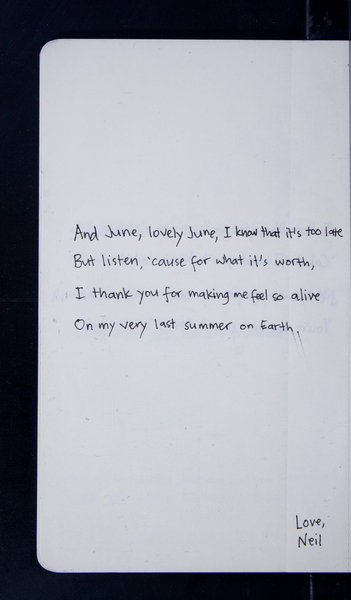 And June, lovely June, I know that it's too late
But listen, 'cause for what it's worth,
I thank you for making me feel so alive
On my very last summer on Earth.
Love,
Neil